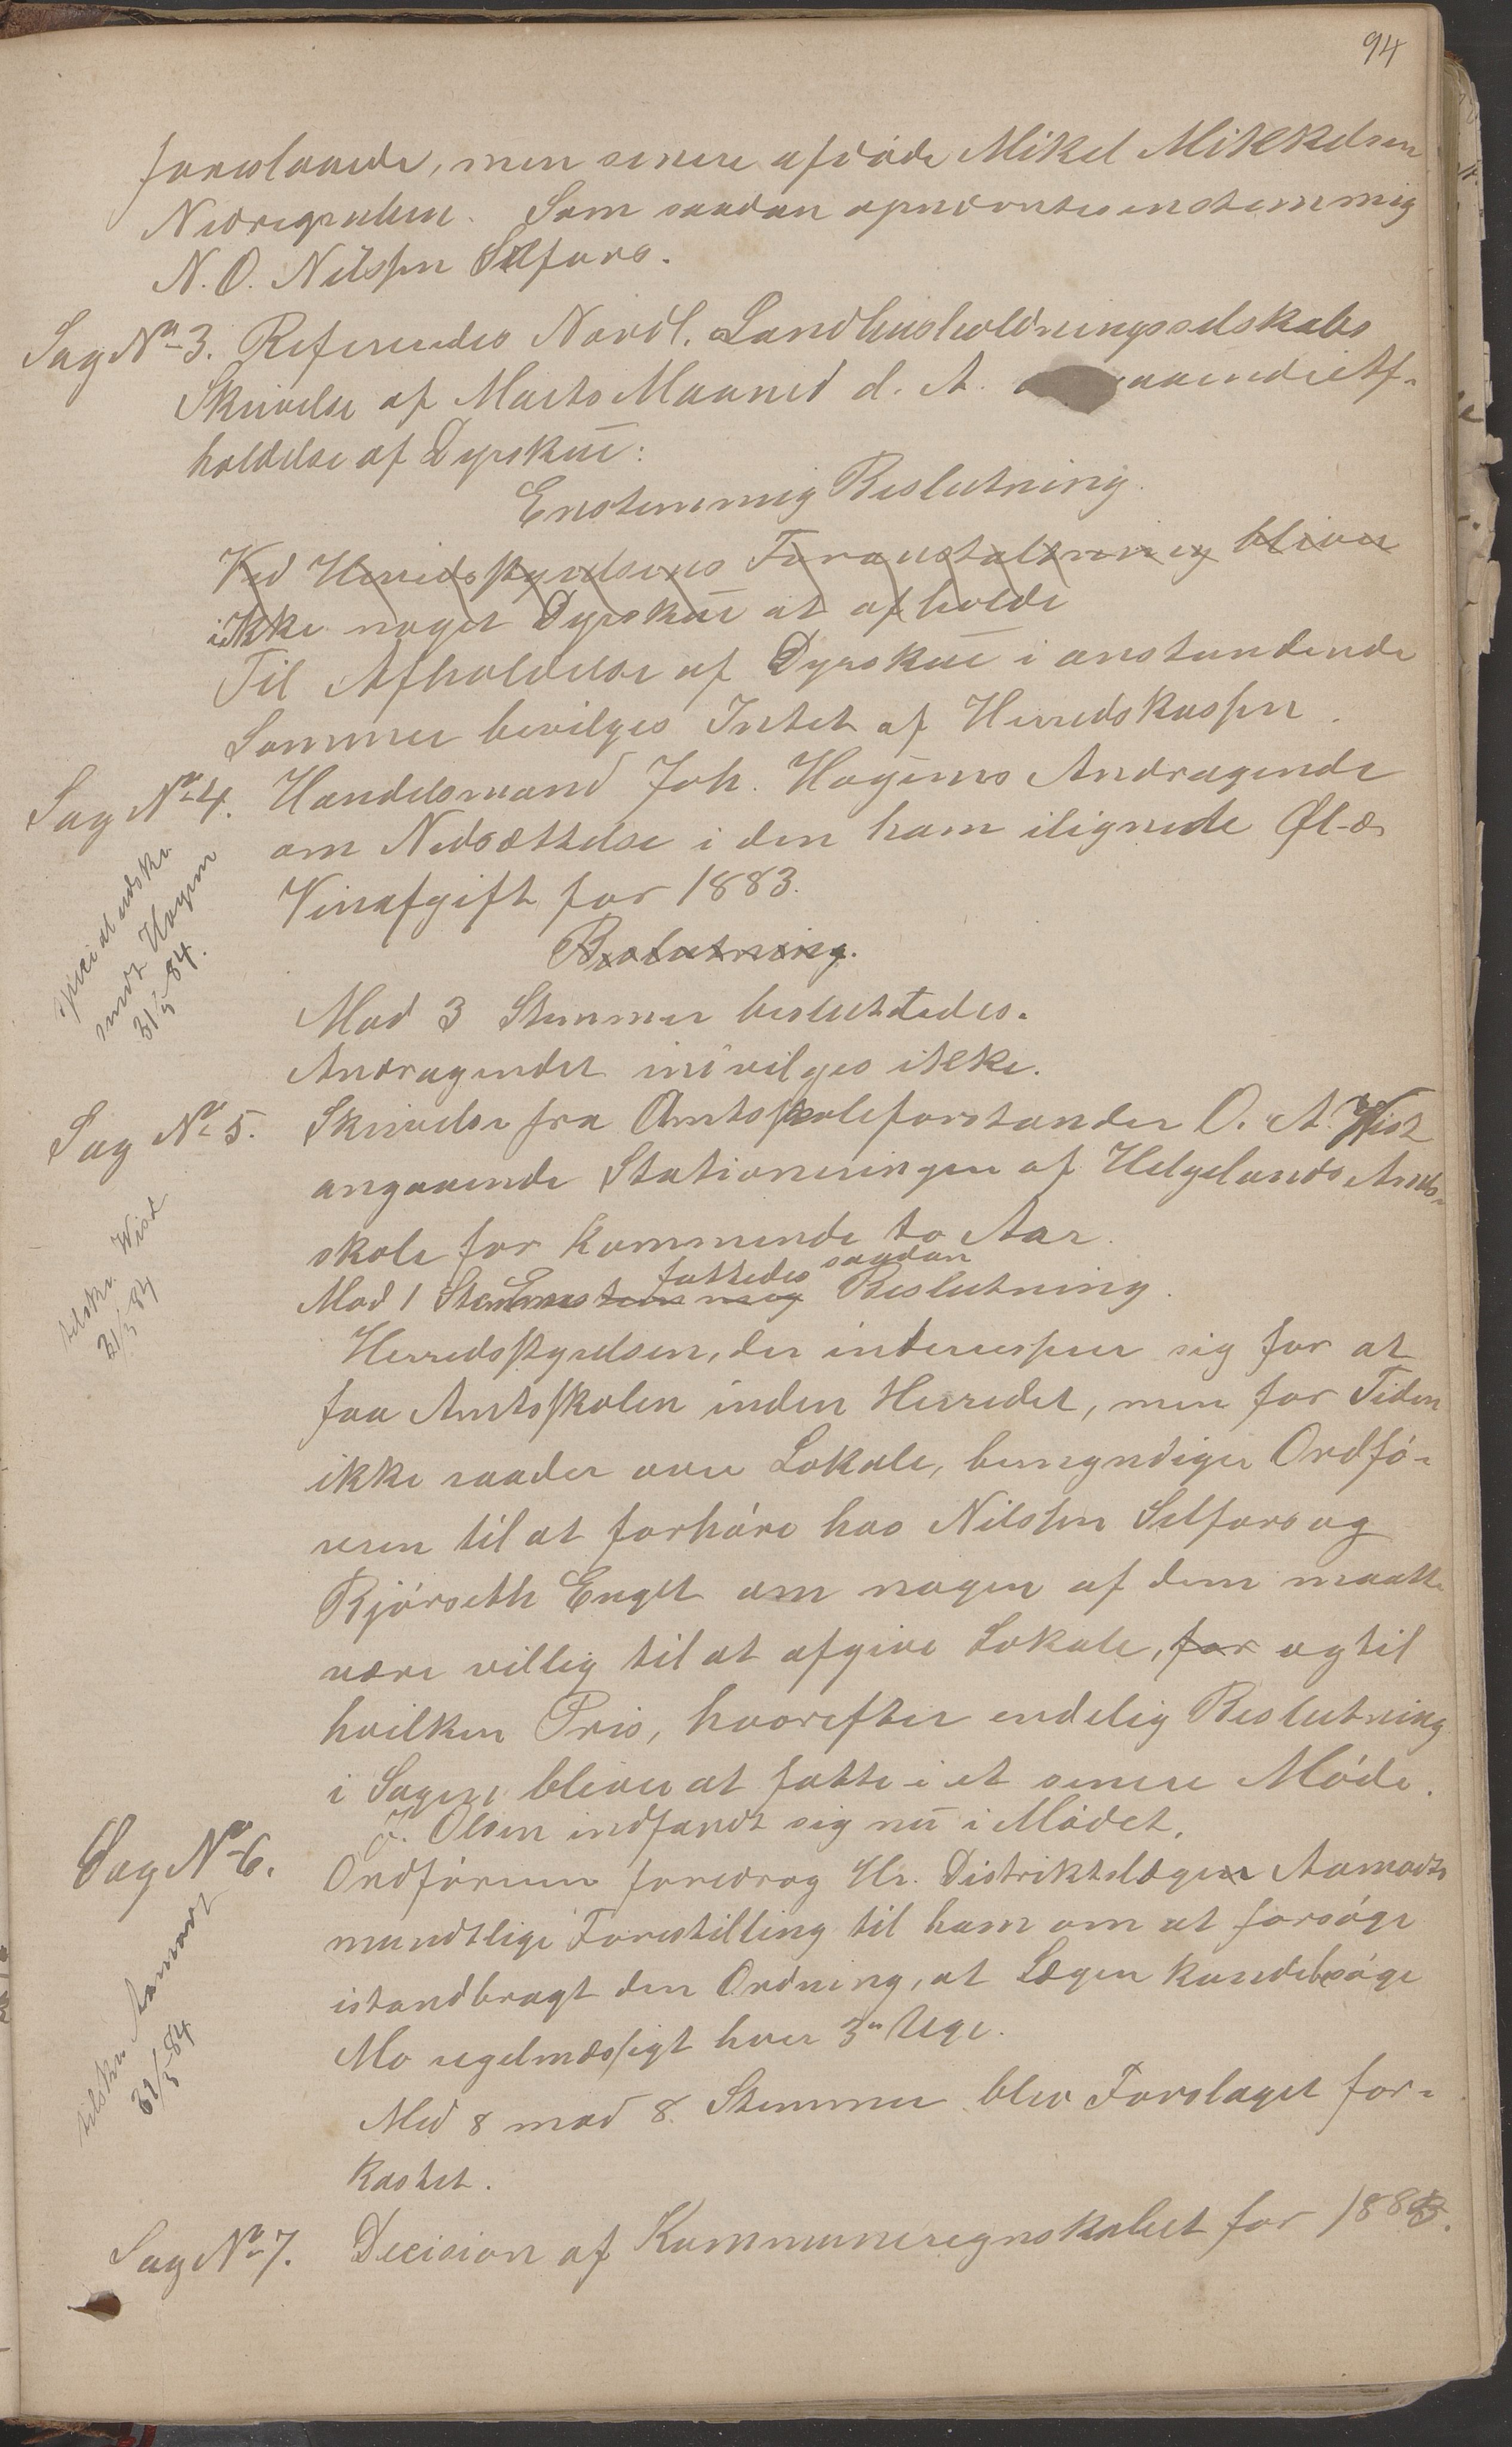 94
foreslaaede, men senere afdøde Mikel Mikkelsen
Nedregrahen. Som saadan opnævntes enstemmig
N. O. Nilssen Selfors.
Sag No 3. Refereredes Nordl. Landhusholdningsselskabs
Skrivelse af Marts Maaned d. A. gaaende Af-
holdelse af Dyrskue:
Enstemmig Beslutning.
Ved Herredsstyrelsens Foranstaltning bliver
ikke noget Dyrskue at afholde
Til Afholdelse af Dyrskue i anstundende
Sommer bevilges Intet af Herredskassen.
Sag No 4. Handelsmand Joh. Hagens Andragende
om Nedsættelse i den ham ilignede Øl- &
Vinafgift for 1883.
Beslutning.
Mod 3 Stemmer besluttedes.
Andragendet indvilges ikke.
Hagen
31/5 84.
Sag No 5. Skrivelse fra Amtsskoleforstander O. A. Wist
angaaende Stationeringen af Helgelands Amts-
skole for kommende to Aar.
fattedes saadan
Mod 1 Stemme Enstemmig Beslutning.
tilskr. Wist
31/5 84
Herredsstyrelsen, der interesserer sig for at
faa Amtsskolen inden Herredet, men for Tiden
ikke raader over Lokale, bemyndiger Ordfø-
reren til at forhøre hos Nilssen Selfors og
Bjørseth Enget om nogen af dem maatte
være villig til at afgive Lokale, for og til
hvilken Pris, hvorefter endelig Beslutning
i Sagen bliver at fatte i et senere Møde.
J. Olsen indfandt sig nu i Mødet.
Sag No 6. Ordføreren foredrog Hr. Distriktslægen Aamodts
mundtlige Forestilling til ham om at forsøge
istandbragt den Ordning, at Lægen kunde besøge
Mo regelmæssigt hver 3die Uge.
tilskr. Aamodt
31/5 84
Med 8 mod 8 Stemmer blev Forslaget for-
kastet.
Sag No 7. Decision af Kommuneregnskabet for 1883.